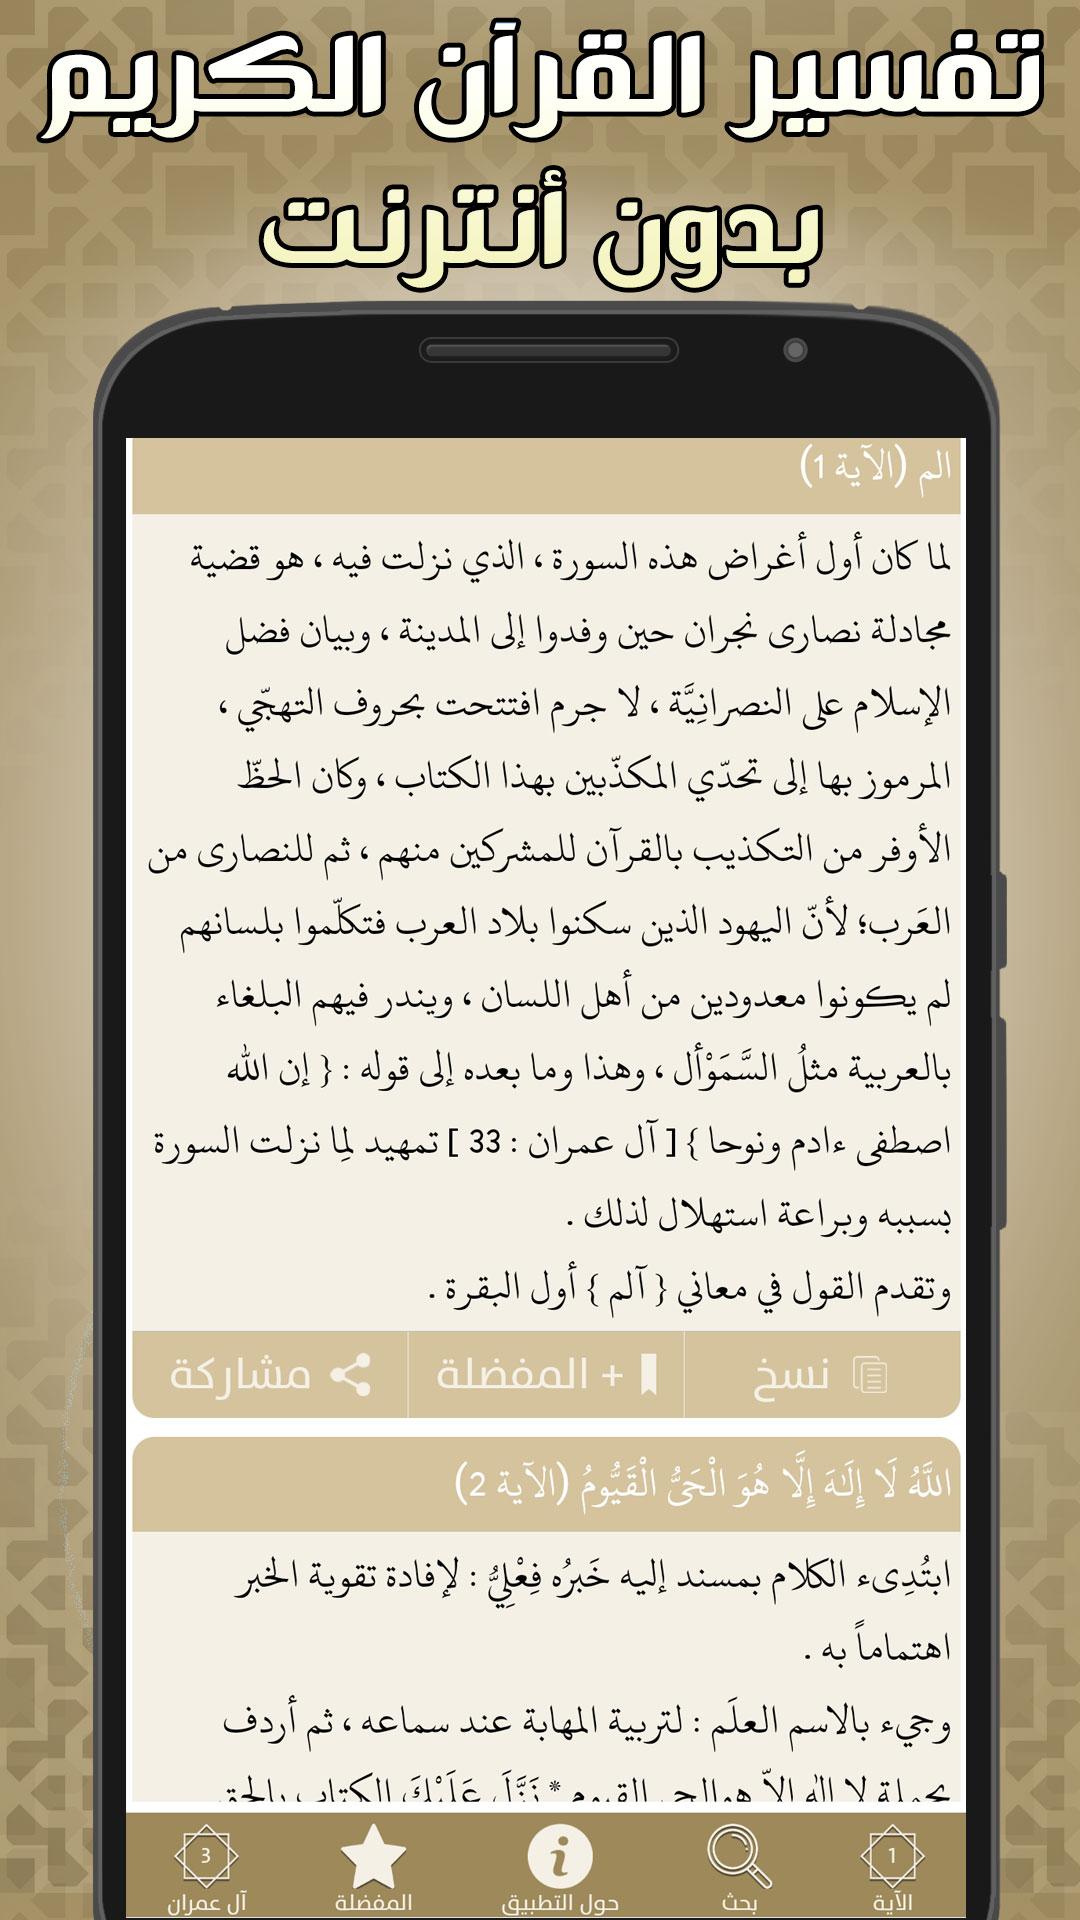 تفسير القرآن الكريم
بدون أنترنت
الم (الآية 1)
لما كان أول أغراض هذه السورة ، الذي نزلت فيه ، هو قضية
مجادلة نصارى نجران حين وفدوا إلى المدينة ، وبيان فضل
الإسلام على النصرانِيَّة ، لا جرم افتتحت بحروف التهجّي ،
المرموز بها إلى تحدّي المكذّبين بهذا الكتاب ، وكان الحظّ
الأوفر من التكذيب بالقرآن للمشركين منهم ، ثم للنصارى من
العَرب؛ لأنّ اليهود الذين سكنوا بلاد العرب فتكلّموا بلسانهم
لم يكونوا معدودين من أهل اللسان ، ويندر فيهم البلغاء
بالعربية مثلُ السَّمَوْأل ، وهذا وما بعده إلى قوله : { إن الله
اصطفى ءادم ونوحا } [ آل عمران : 33 ] تمهيد لِما نزلت السورة
بسببه وبراعة استهلال لذلك .
وتقدم القول في معاني { آلم } أول البقرة .
نسخ
+ المفضلة
مشاركة
اللَّهُ لَا إِلَٰهَ إِلَّا هُوَ الْحَيُّ الْقَيُّومُ (الآية 2)
ابتُدِىء الكلام بمسند إليه خَبرُه فِعْلِيُّ : لإفادة تقوية الخبر
اهتماماً به .
وجيء بالاسم العلَم : لتربية المهابة عند سماعه ، ثم أردف
بجملة لا إله إلاّ هوالحي القيوم * نَزَّلَ عَلَيْكَ الكتاب بالحق
1
3
الآية
بحث
حول التطبيق
المفضلة
آل عمران